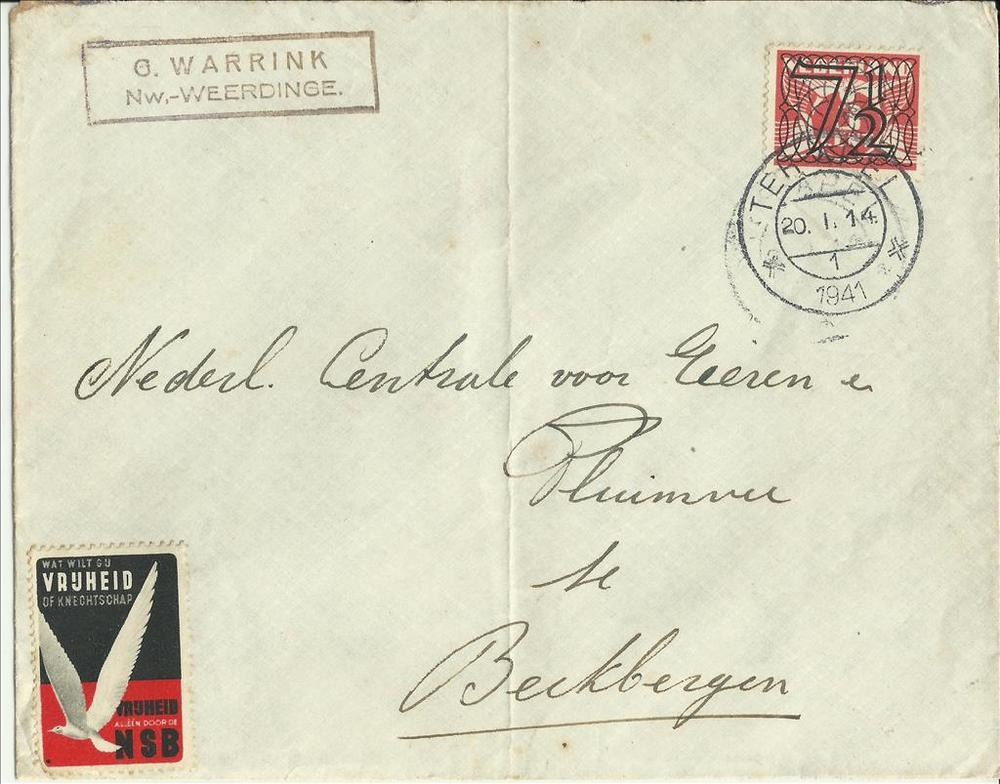 G. WARRINK
NW.-WEERDINGE.
NEDERLAND
7 1/2
TER APEL
20. I. 14
1
1941
Nederl. Centrale voor Eieren e
Pluimvee
te
Beekbergen
WAT WILT GIJ
VRIJHEID
OF KNECHTSCHAP
VRIJHEID
ALLEEN DOOR DE
NSB